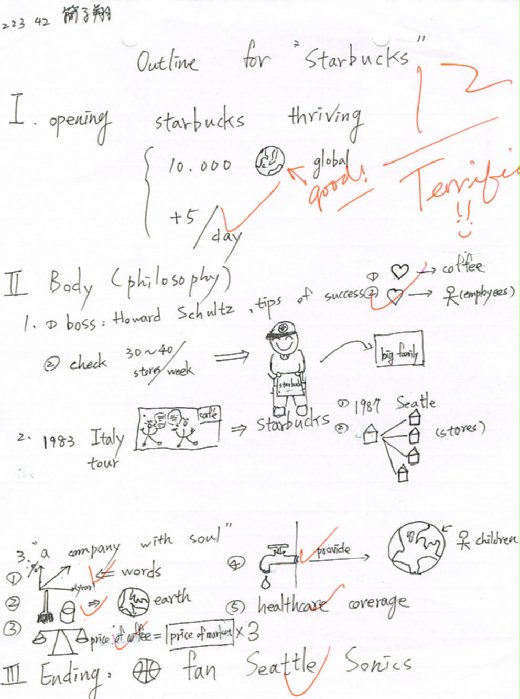 223 42 簡子翔
Outline for "Starbucks"
12
I. opening starbucks thriving
10.000 global
good!
Terrific
+5/day
II Body (philosophy)
1. ① boss: Howard Schultz, tips of success
① → coffee
② → (employees)
② check 30~40 stores/week ⇒ starbucks → big family
2. 1983 Italy tour café ⇒ starbucks
① 1987 Seatle
② (stores)
3. "a company with soul"
① % words
② ⇒ earth
③ price of coffee = price of market × 3
④ provide → children
⑤ healthcare coverage
III Ending. fan Seattle Sonics